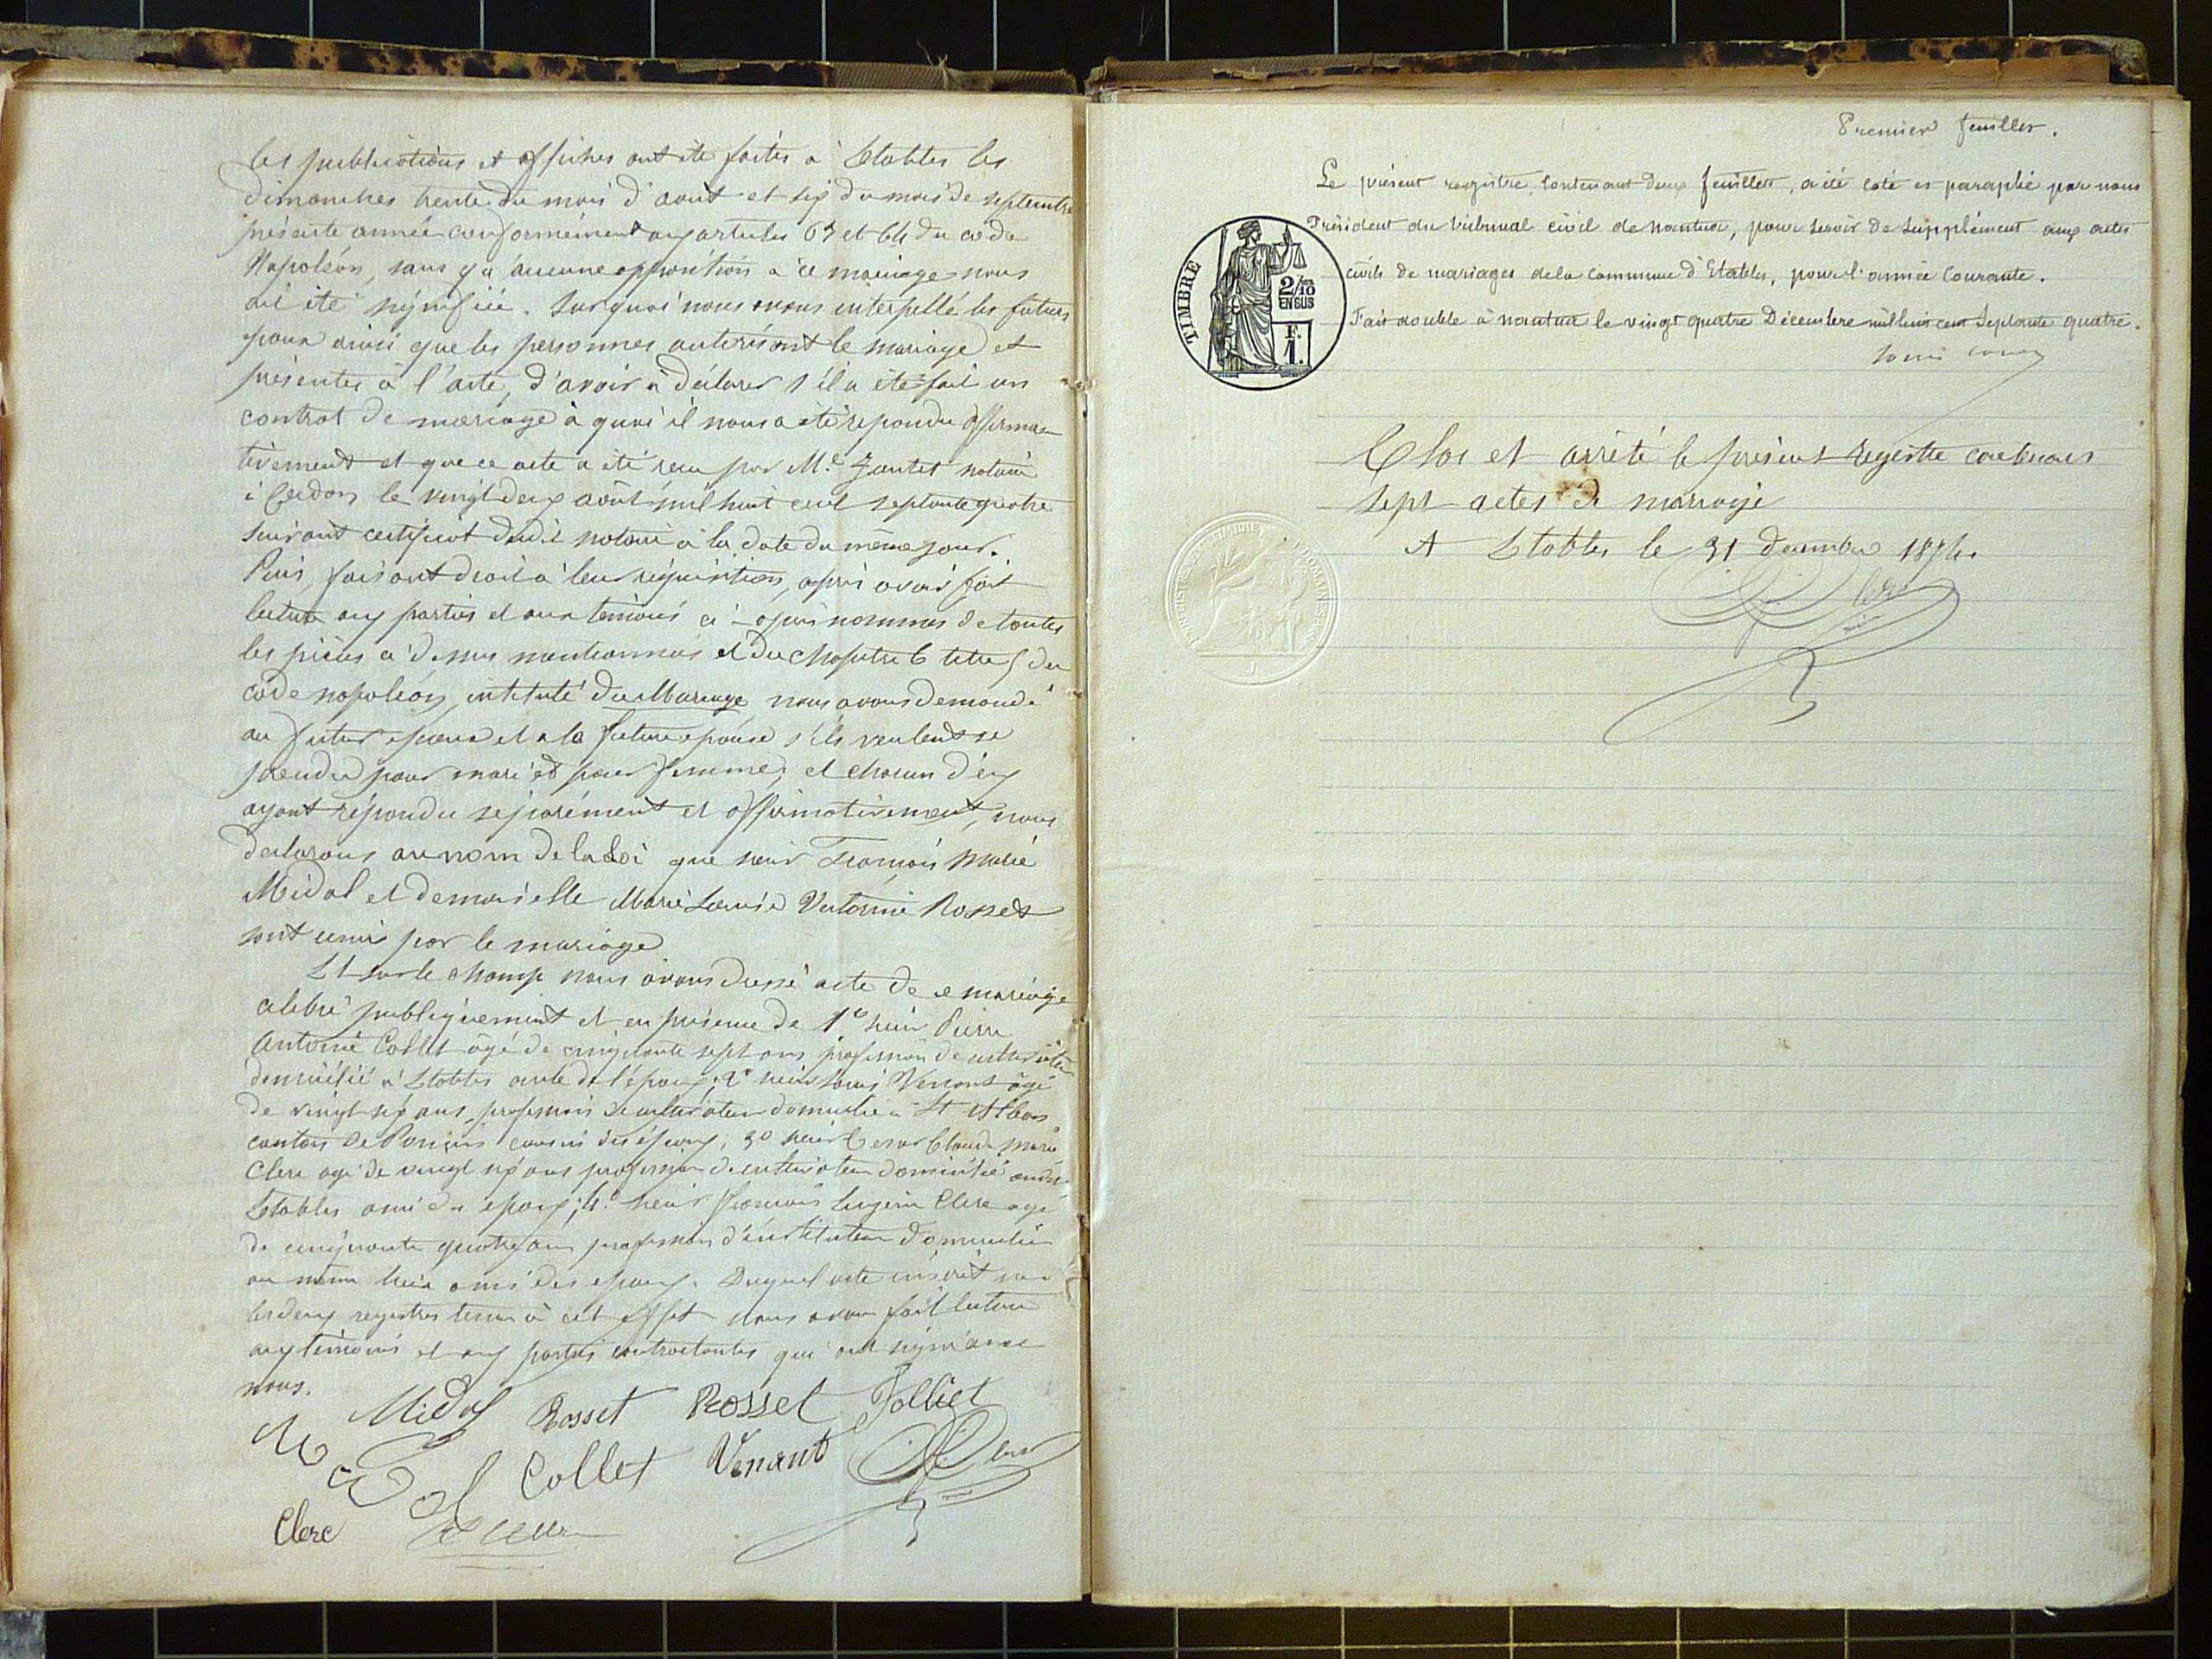 les publications et affiches ont été faites à Etables les
dimanches trente du mois d'août et six du mois de septembre
présente année conformément aux articles 63 et 64 du code
Napoléon, sans qu'aucune opposition à ce mariage nous
ait été signifiée. Sur quoi nous avons interpellé les futurs
époux ainsi que les personnes autorisant le mariage et
présentes à l'acte, d'avoir à déclarer s'il a été fait un
contrat de mariage à quoi il nous a été répondu affirma-
tivement et que ce acte a été reçu par Me notaire
à Cerdon le vingt deux août mil huit cent septante quatre
suivant certificat dudit notaire à la date du même jour.
Puis, faisant droit à leur réquisition, après avoir fait
lecture aux parties et aux témoins ci-après nommés de toutes
les pièces ci dessus mentionnées et du chapitre 6 titre 5 du
code napoléon, intitulé du Mariage nous avons demandé
au futur époux et a la future épouse s'ils veulent se
prendre pour mari et pour femme; et chacun d'eux
ayant répondu séparément et affirmativement, nous
déclarons au nom de la Loi que sieur François Marie
Midol et demoiselle Marie Louise Victorine Rosset
sont unis par le mariage
Et sur le champ nous avons dressé acte de ce mariage
célébré publiquement et en présence de 1° sieur Pierre
Antoine Collet âgé de cinquante sept ans profession de cultivateur
domicilié à Etables de l'époux; 2° sieur Louis Venant âgé
de vingt six ans, profession de cultivateur domicilié à St Alban
canton de Poncin cousin des époux; 3° sieur César Claude Marie
Clerc âgé de vingt six ans profession de cultivateur domicilié
Etables ami des époux; 4° sieur François Eugène Clerc âgé
de cinquante quatre ans profession d'instituteur domicilié
au même lieu ami des époux. Duquel acte inscrit sur
les deux registres tenus à cet effet nous avons fait lecture
aux témoins et aux parties contractantes qui ont signé avec
nous.
Midol Rosset Rosset Jolliet
Midol Collet Venant Clerc
Clerc
Premier feuillet.
Le présent registre, contenant deux feuillets, a été coté et paraphé par nous
Président du tribunal civil de nantua, pour servir de supplément aux actes
civils de mariages de la commune d'Etables, pour l'année courante.
Fait double à nantua le vingt quatre Décembre mil huit cent septante quatre.
TIMBRE
2/10
EN SUS
F.
1.
Clos et arrêté le présent registre contenant
sept actes de mariage
A Etables le 31 décembre 1874.
Clerc